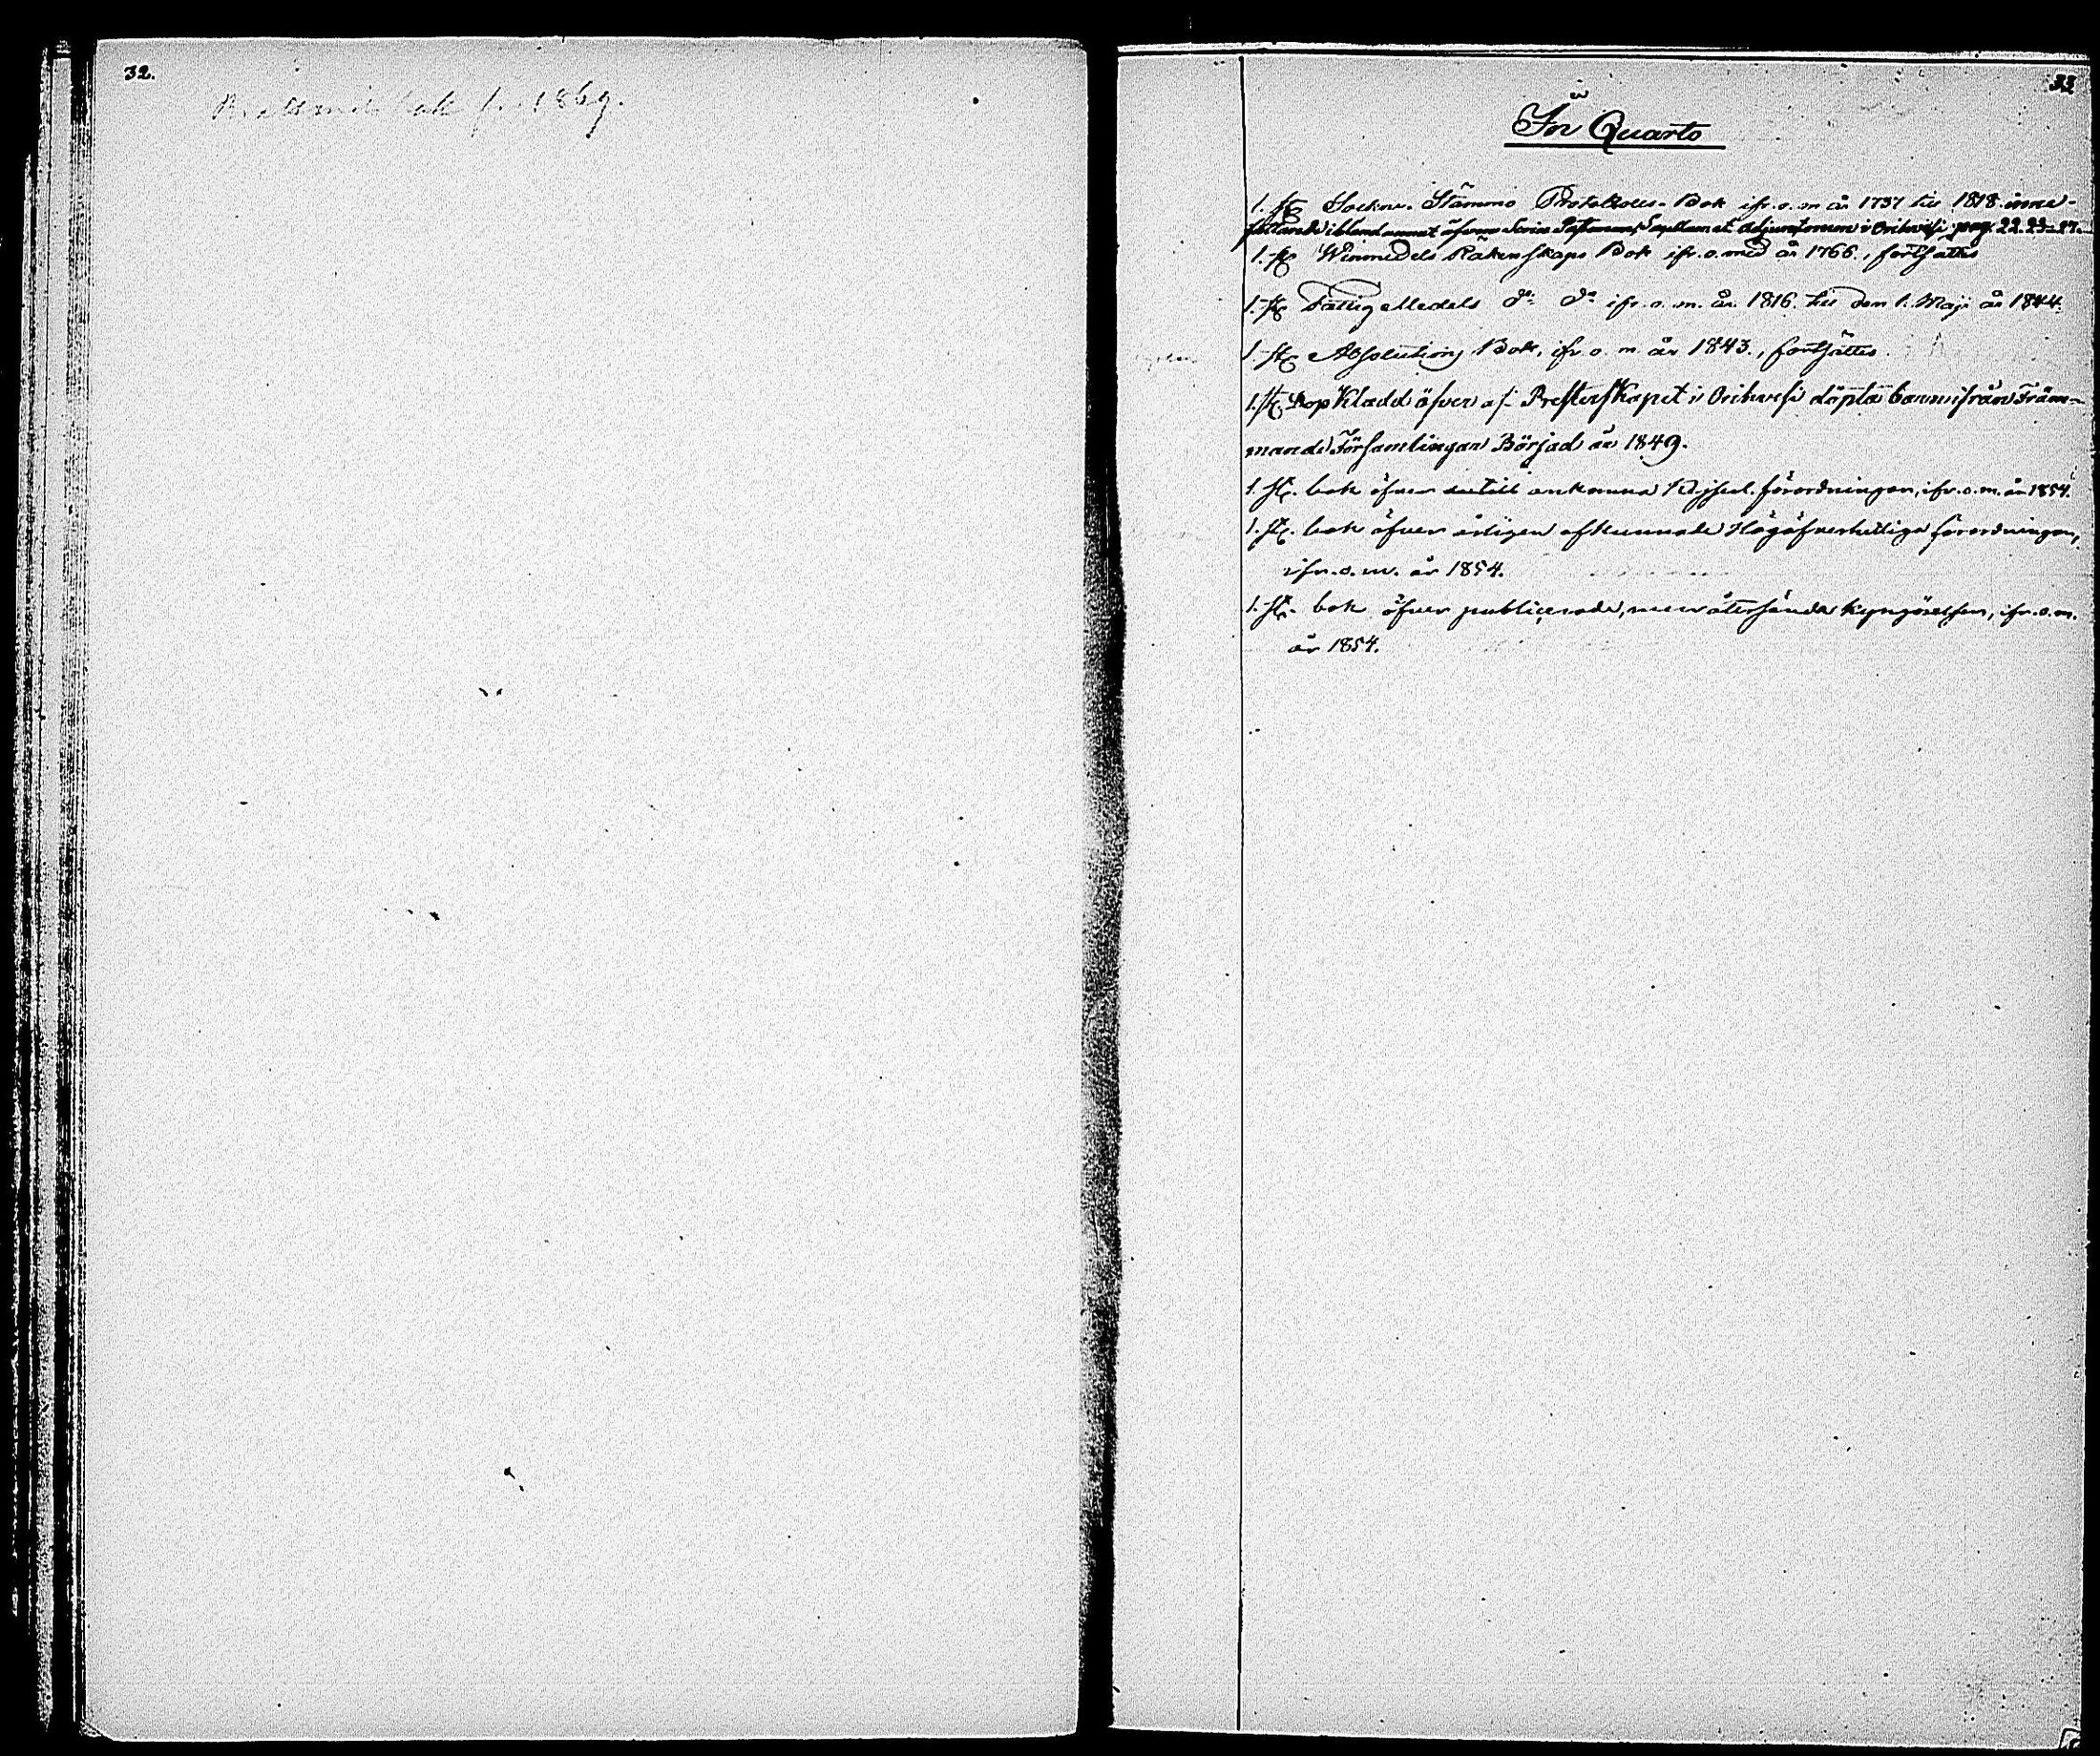 32.
bok fr. 1869.
33
In Quarto
1. st. Sockne-Stämmo Protokolls-Bok ifr. o. m år 1737 till 1818. inne-
fattande ibland annat äfven Series Pastorum, Sacellan. et Adjunctorum i Orihvesi pag. 22. 23-27.
1. st. Winmedels Räkenskaps Bok ifr. o. med år 1766., fortsättes
1. st. Fattig Medels do do ifr. o. m. år. 1816. till den 1. Maji år 1844.
1. st. Absolutions Bok, ifr. o. m. år 1843., fortsättes.
1. st. Dop Kladd öfver af Presterskapet i Orihvesi döpta barn ifrån Främ-
mande Församlingar Börjad år 1849.
1. st. bok öfver ankomna Kejserl. förordningar, ifr. o. m. år 1854.
1. st. bok öfver årligen afkunnade Högöfverhetliga förordningar,
ifr. o. m. år 1854.
1. st. bok öfver publicerade, men återsända kungörelser, ifr. o. m.
år 1854.